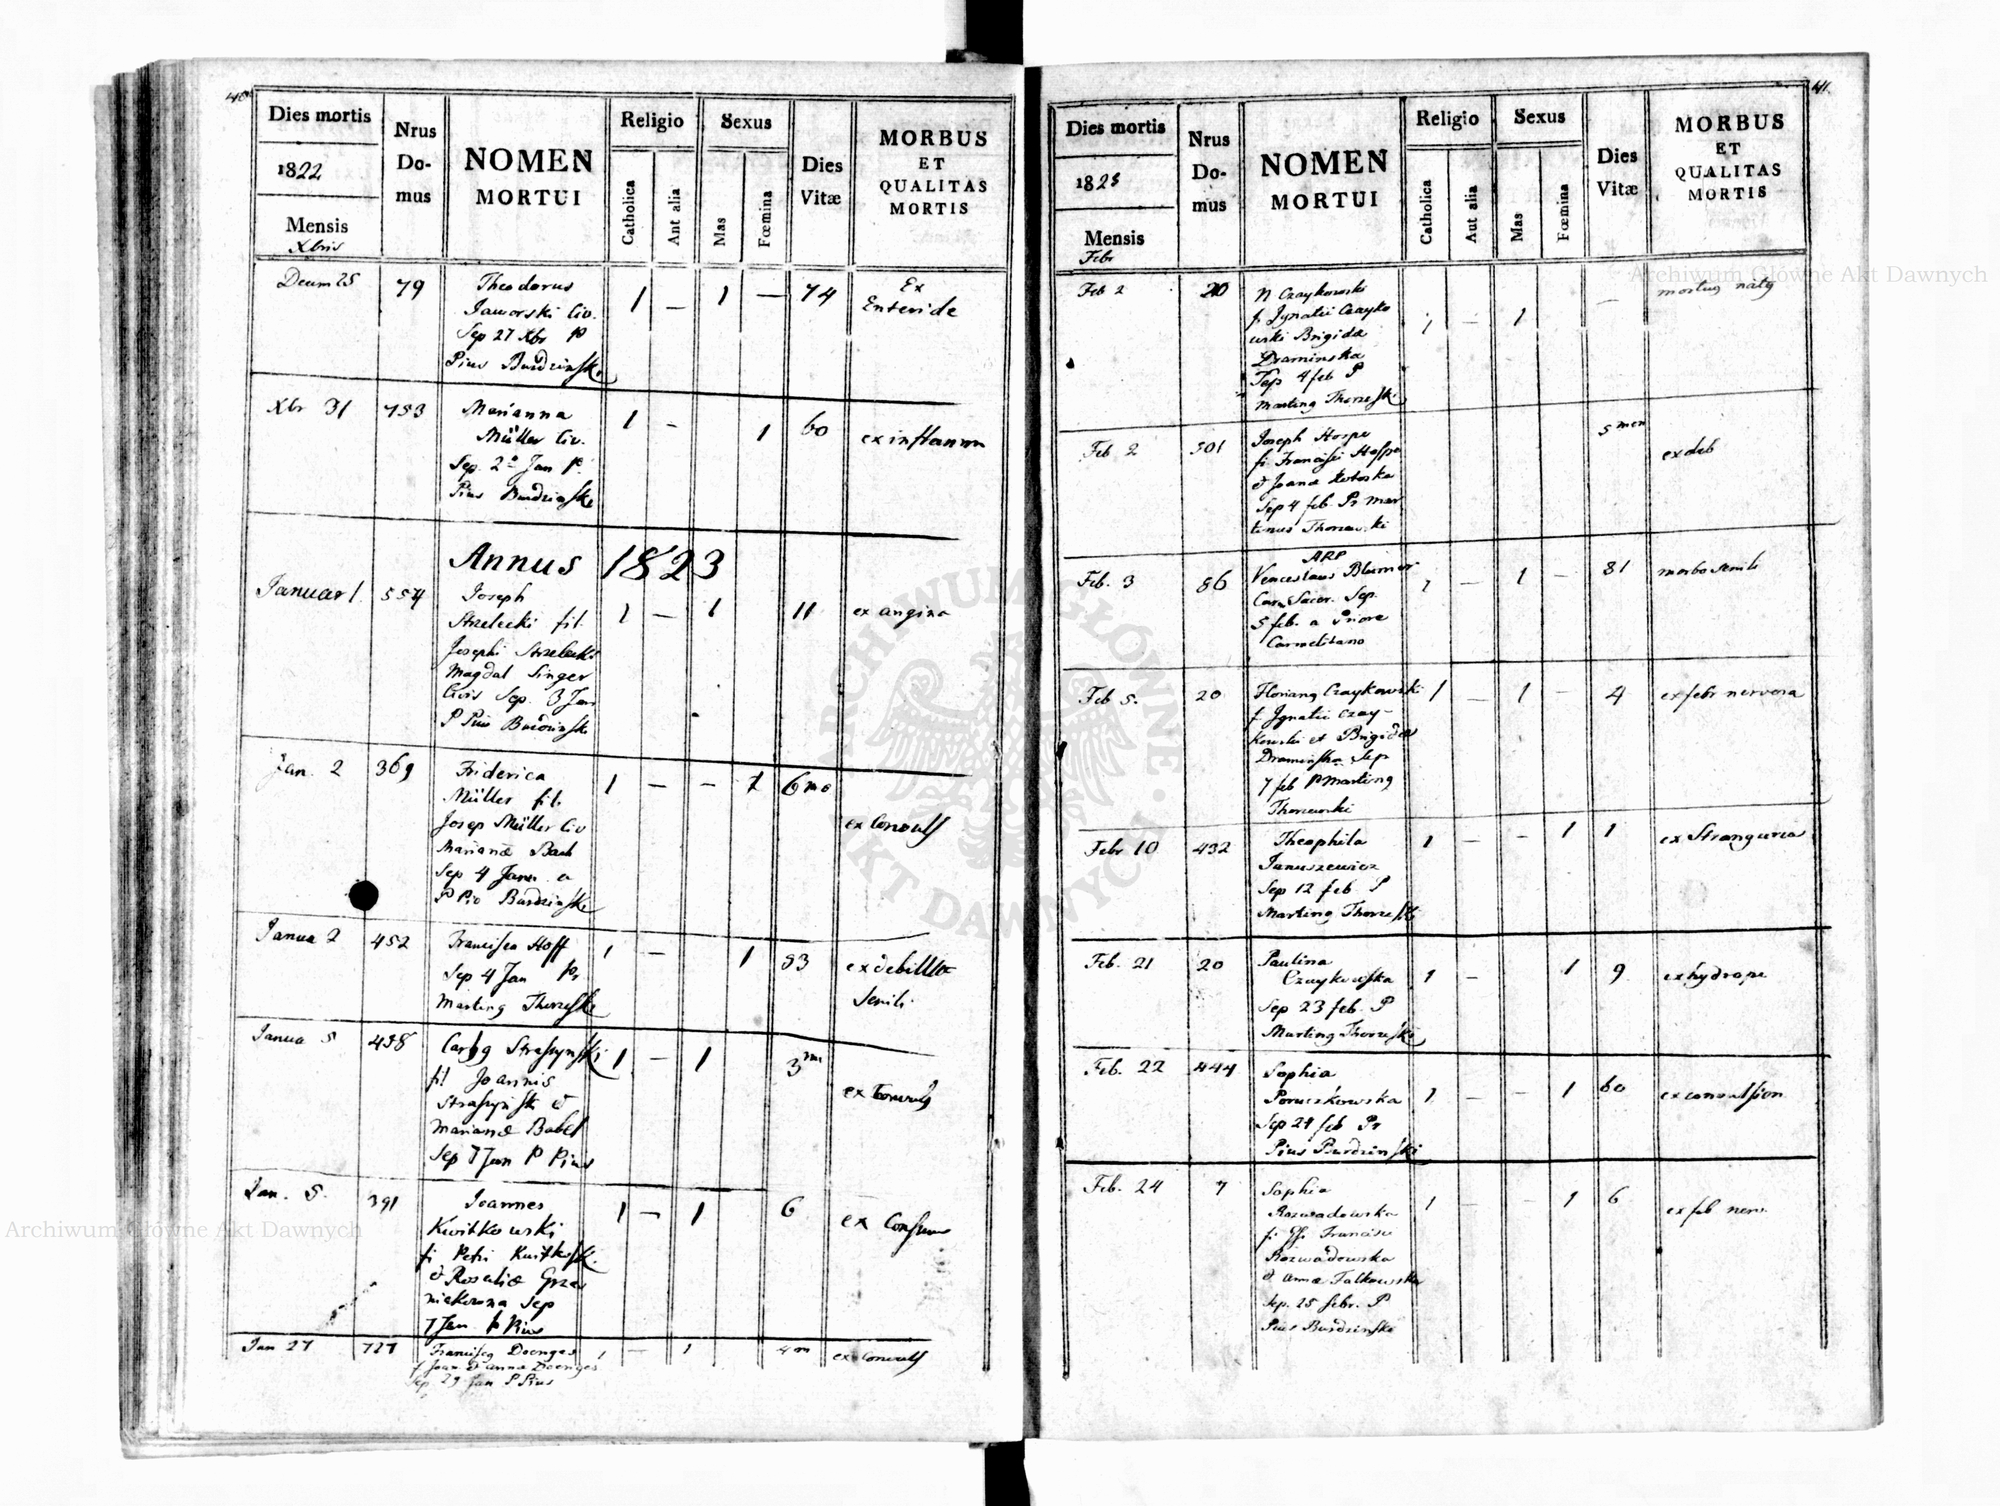 40
Dies mortis
1822
Mensis
Xbris
Nrus
Do-
mus
NOMEN
MORTUI
Religio
Catholica
Aut alia
Sexus
Mas
Fœmina
Dies
Vitæ
MORBUS
ET
QUALITAS
MORTIS
79
Theodorus
Jaworski Civ.
Sep 27 Xbr P
Pius Burdzinski
1 — 1 — 74
Ex
Xbr 31 753
Marianna
Müller Civ.
Sep. 2a Jan P.
Pius Burdzinski
1 - 1 60
Annus 1823
Januar 1. 554
Joseph
Strzelecki fil.
Josephi Strzelecki
Magdal Singer
Civis Sep. 3 Jan
P Pius Burdzinski
1 — 1 11 ex angina
Jan. 2 369
Friderica
Müller fil.
Josep Müller Civ
Marianæ Bach
Sep 4 Janu a
P Pio Burdzinski
1 — - 1 6 mo
ex Convuls
Janua 2 452
Francisca Hoff
Sep 4 Jan Pr
Marting Thorzeski
1 — 1 83
Senili
Janua 5 498
fil Joannis
Marianæ Babel
Sep 7 Jan P Pius
1 — 1 3 m
ex Convuls
Jan. 5. 391
Joannes
Kwitkowski
fi Petri
& Rosaliæ Grze
niakowna Sep
7 Jan P Pius
1 — 1 6
Jan 27 727
Doenges
f Joan & Anna Doenges
Sep. 29 Jan P Pius
1 — 1 4 m ex Convuls
41.
Dies mortis
1823
Mensis
Febr
Nrus
Do-
mus
NOMEN
MORTUI
Religio
Catholica
Aut alia
Sexus
Mas
Fœmina
Dies
Vitæ
MORBUS
ET
QUALITAS
MORTIS
Feb 2 20
N Czaykowski
f. Ignatii Czayko
wski Brigida
Draminska
Sep 4 feb P
Marting Thorzeski
1 — 1 —
Feb 2 501
Joseph Hospe
fi Francisci Hospe
Sep 4 feb. Pr Mar
tinus Thorzewski
5 men
ex deb
Feb. 3 86
ARP
Venceslaus Blumer
Carm. Sacer. Sep.
5 feb. a Priore
Carmelitano
1 — 1 — 81 morbo senili
Feb 5. 20
Floriang Czaykowski
f. Ignatii Czay-
kowski et Brigidæ
Draminska Sep
7 feb P Marting
Thorzewski
1 — 1 — 4 ex febr nervosa
Febr 10 432
Theophila
Januszewicz
Sep 12 feb P
Marting Thorzeski
1 — - 1 1 ex Stranguria
Feb. 21 20
Paulina
Czaykowska
Sep 23 feb. P
Marting Thorzeski
1 — 1 9 ex hydrope
Feb. 22 444
Sophia
Poruszkowska
Sep 24 feb Pr
Pius Burdzinski
1 — — 1 60 ex convulsion
Feb. 24 7
Sophia
Rozwadowska
Rozwadowska
& Anna Falkowska
Sep. 25 febr. P
Pius Burdzinski
1 — - 1 6 ex feb nerv.
Archiwum Główne Akt Dawnych
Archiwum Główne Akt Dawnych
ARCHIWUM GŁÓWNE AKT DAWNYCH